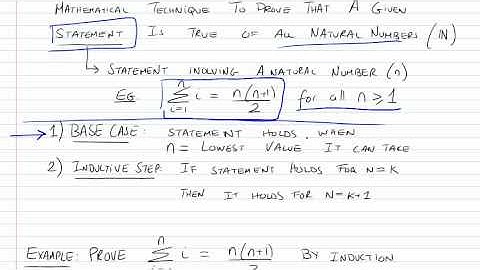 MATHEMATICAL TECHNIQUE TO PROVE THAT A GIVEN
STATEMENT IS TRUE OF ALL NATURAL NUMBERS (ℕ)
STATEMENT INOLVING A NATURAL NUMBER (n)
EG ∑_{i=1}^{n} i = n(n+1)/2 for all n ≥ 1
1) BASE CASE: STATEMENT HOLDS WHEN
n = LOWEST VALUE IT CAN TAKE
2) INDUCTIVE STEP: IF STATEMENT HOLDS FOR N=K
THEN IT HOLDS FOR N=K+1
EXAMPLE: PROVE ∑_{i=1}^{n} i = n(n+1)/2 BY INDUCTION